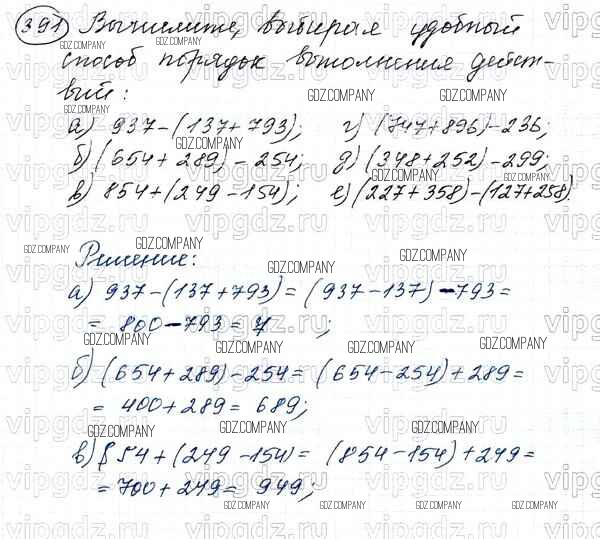 391 Вычислите, выбирая удобный
способ порядок выполнения дейст-
вий:
а) 937-(137+793); г) (747+896)-236;
б) (654+289)-254; д) (348+252)-299;
в) 854+(249-154); е) (227+358)-(127+258).
Решение:
а) 937-(137+793)=(937-137)-793=
= 800-793=7;
б) (654+289)-254=(654-254)+289=
= 400+289=689;
в) 854+(249-154)=(854-154)+249=
= 700+249=949;
GDZ.COMPANY
vipgdz.ru